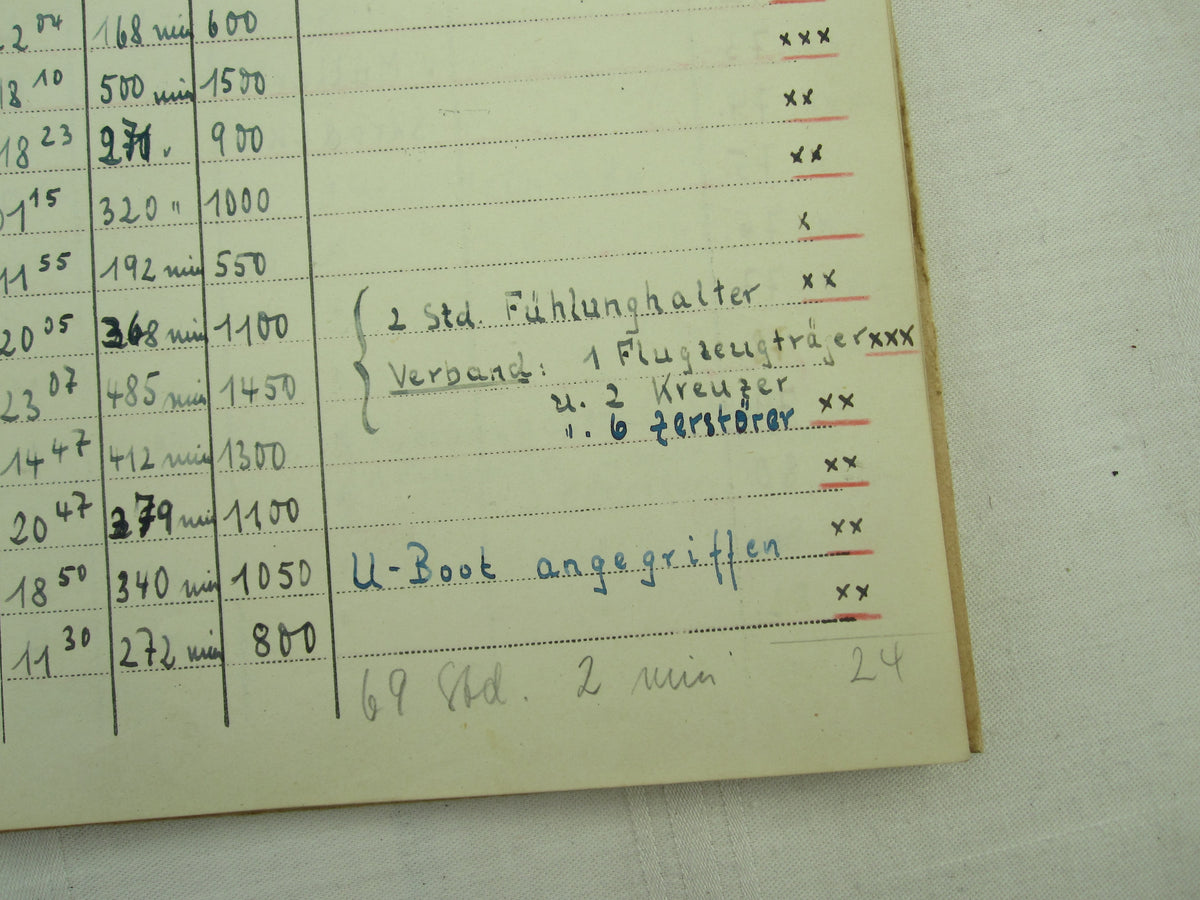 22⁰⁴ 168 min 600
18¹⁰ 500 min 1500 xxx
18²³ 271 " 900 xx
01¹⁵ 320 " 1000 xx
11⁵⁵ 192 min 550 x
20⁰⁵ 368 min 1100 2 Std. Fühlunghalter xx
23⁰⁷ 485 min 1450 Verband: 1 Flugzeugträger xxx
u. 2 Kreuzer
14⁴⁷ 412 min 1300 ". 6 Zerstörer xx
20⁴⁷ 279 min 1100 xx
18⁵⁰ 340 min 1050 U-Boot angegriffen xx
11³⁰ 272 min 800 xx
69 Std. 2 min 24